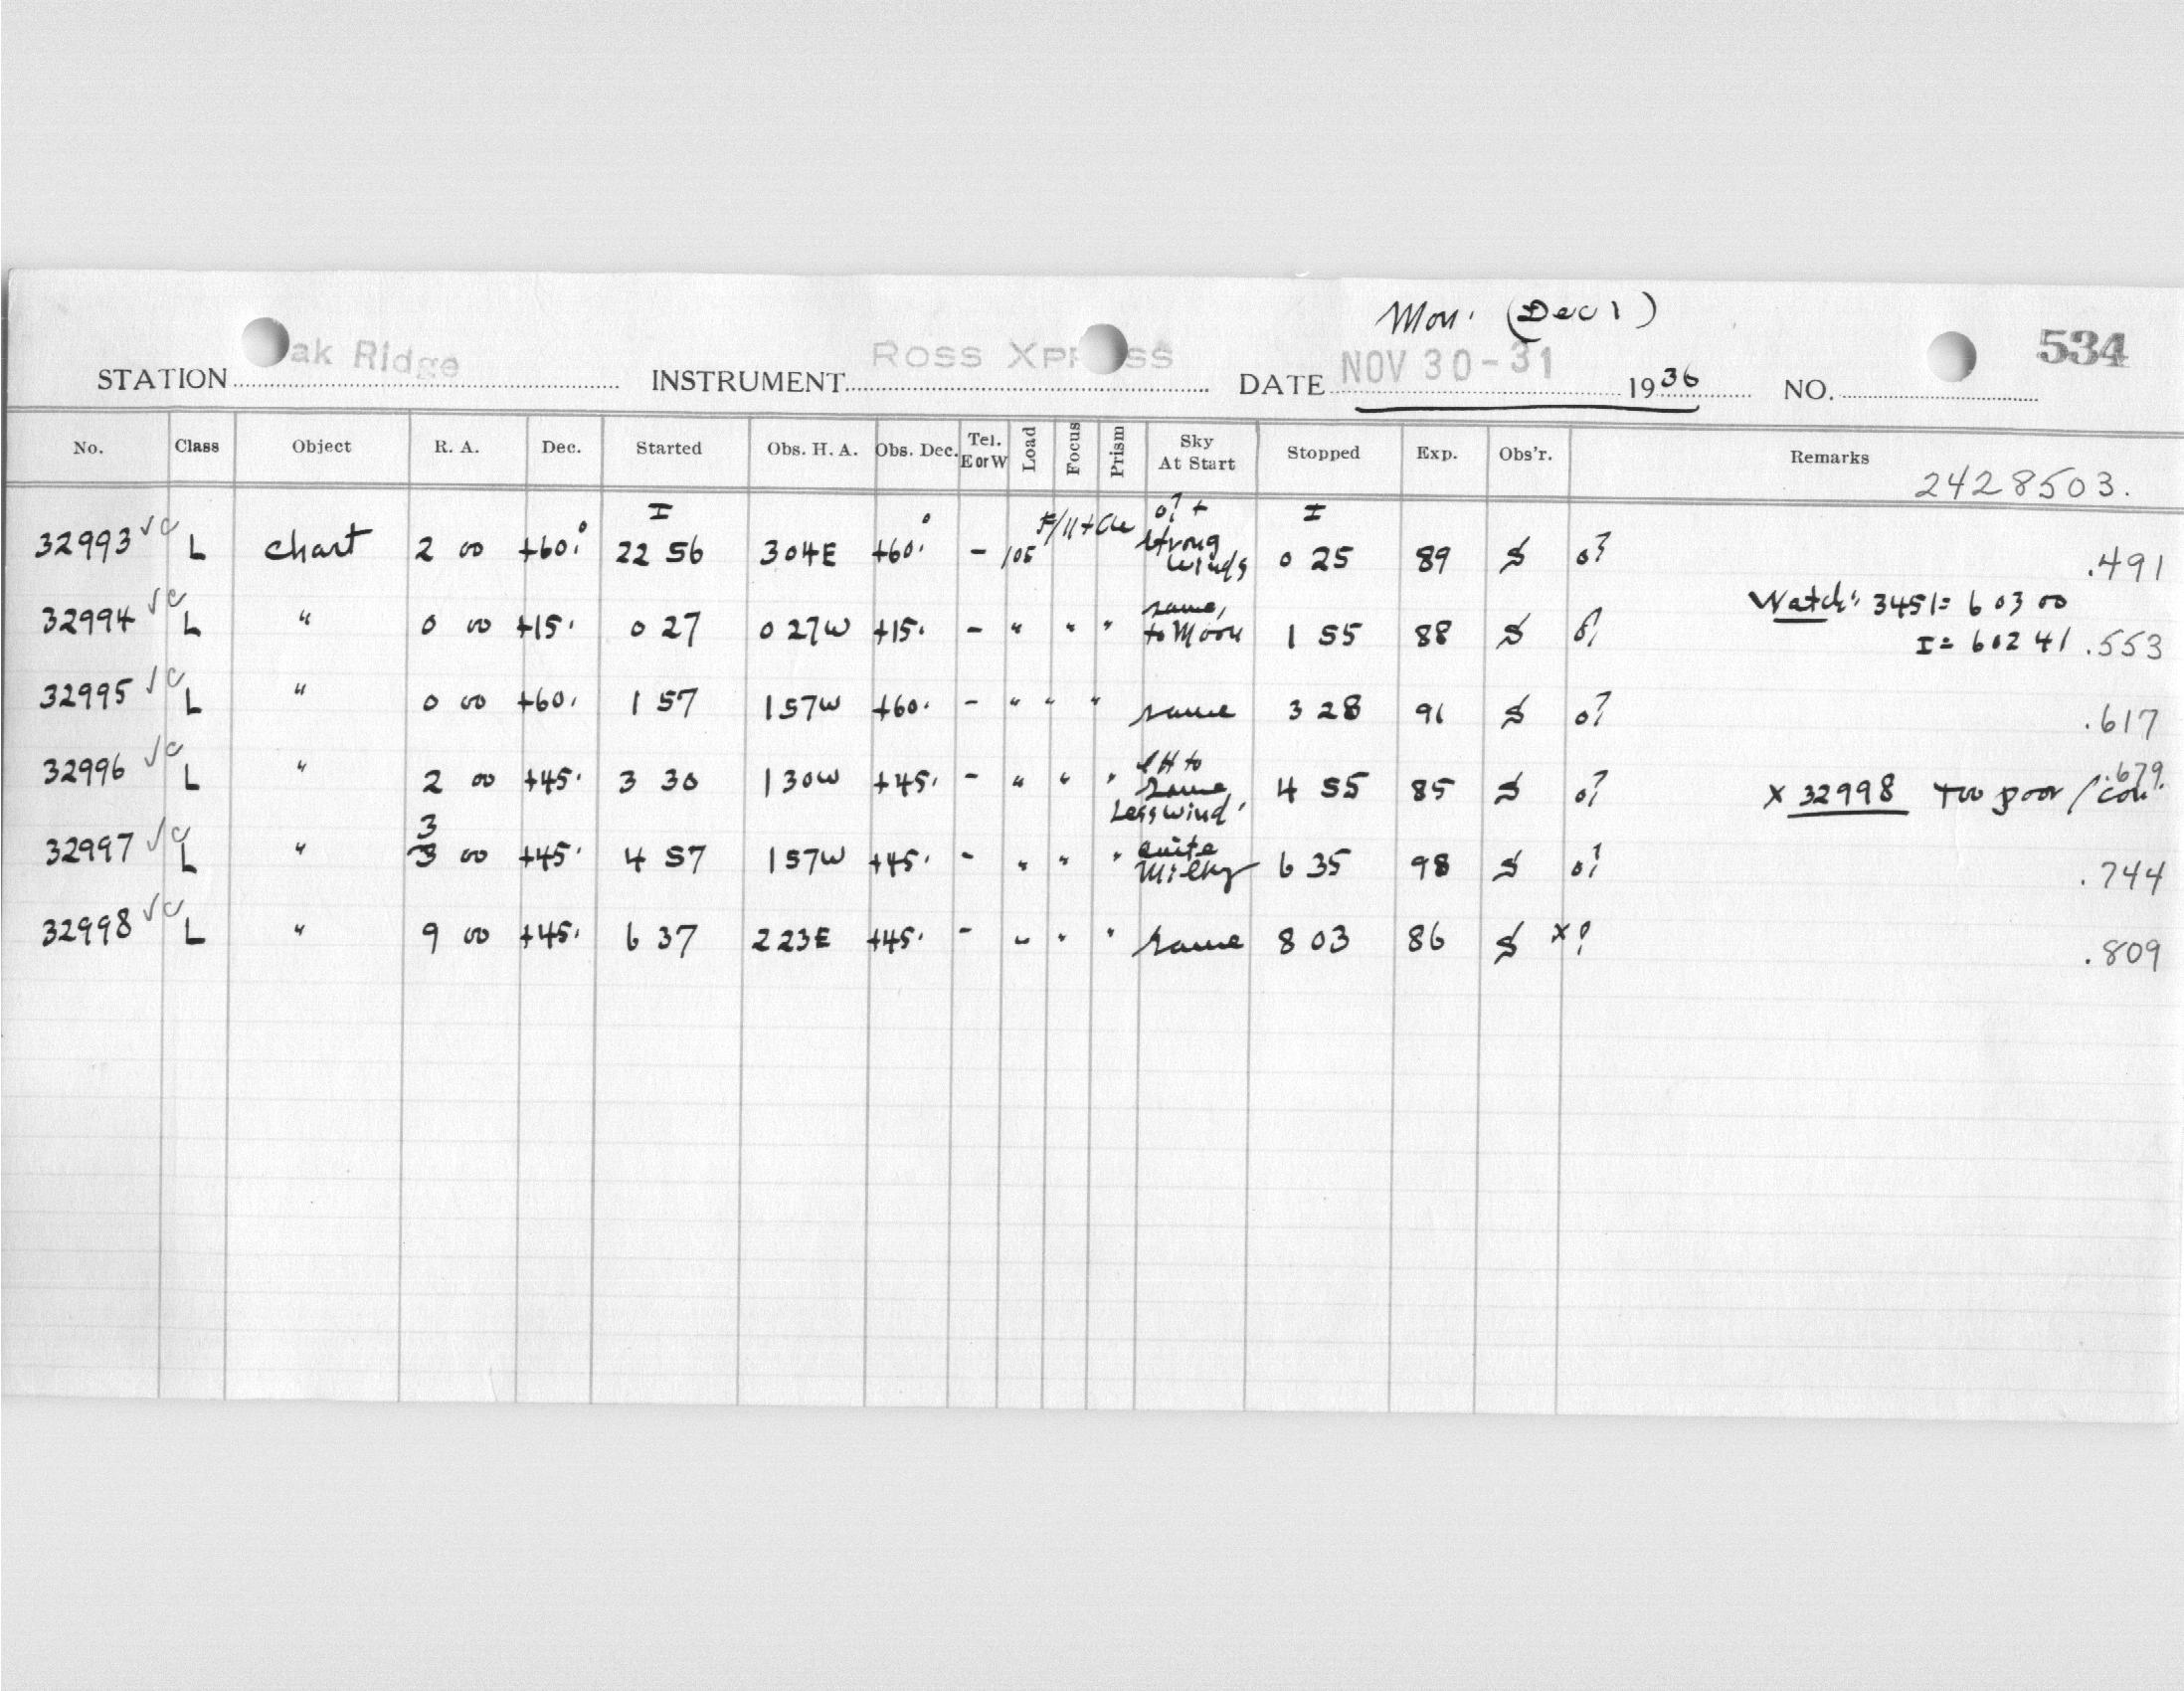 Mon. (Dec 1)
STATION ak Ridge INSTRUMENT Ross Xpr ss DATE NOV 30-31 1936 NO. 534
No. Class Object R. A. Dec. Started Obs. H. A. Obs. Dec. Tel. E or W Load Focus Prism Sky At Start Stopped Exp. Obs'r. Remarks
2428503.
32993 √c L chart 2 00 +60.° I 22 56 304E +60.° - 105 F/11+ o? + strong winds I 0 25 89 S o? .491
32994 √c L " 0 00 +15. 0 27 0 27W +15. - " " " same, to Moon 1 55 88 S o? Watch: 3451= 6 03 00
I= 60241 .553
32995 √c L " 0 00 +60. 1 57 157W +60. - " " " same 3 28 91 S o? .617
32996 √c L " 2 00 +45. 3 30 130W +45. - " " " to same Less wind. 4 55 85 S o? x 32998 Too poor / .679
32997 √c L " 3 3 00 +45. 4 57 157W +45. - " " " quite Milky 6 35 98 S o? .744
32998 √c L " 9 00 +45. 6 37 223E +45. - " " " same 8 03 86 S x? .809